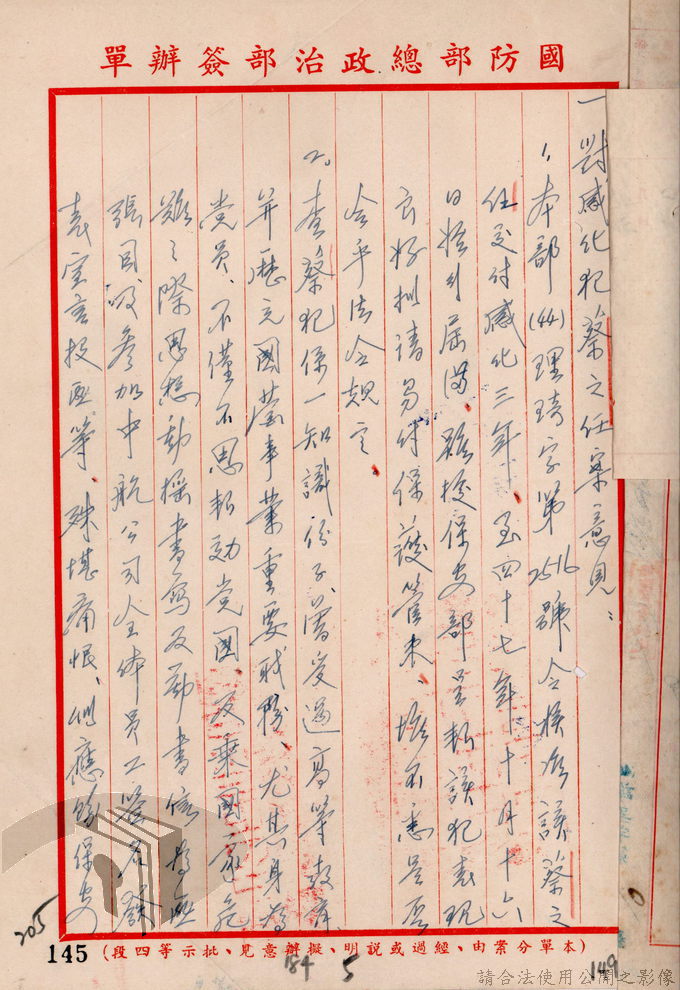 國防部總政治部簽辦單
一對感化犯蔡之任案意見：
1、本部(44)理琦字第2516號令核准該蔡之
任交付感化三年，至四十七年十月十六
日執行屆滿，雖據保安部呈報該犯表現
良好擬請另付保護管束、惟不悉是否
合乎法令規定
2.查蔡犯係一知識份子、曾受過高等教育
并歷充國營事業重要職務，尤其身為
党員、不僅不思報効党國，反乘國家危
難之際思想動搖書寫反動書信為匪
張目及參加中航公司全体員工簽名發
表宣言投匪等，殊堪痛恨、似應飭保安
(本單分案由、經過或說明、擬辦意見、批示等四段)
145
205
184
5
149
請合法使用公開之影像